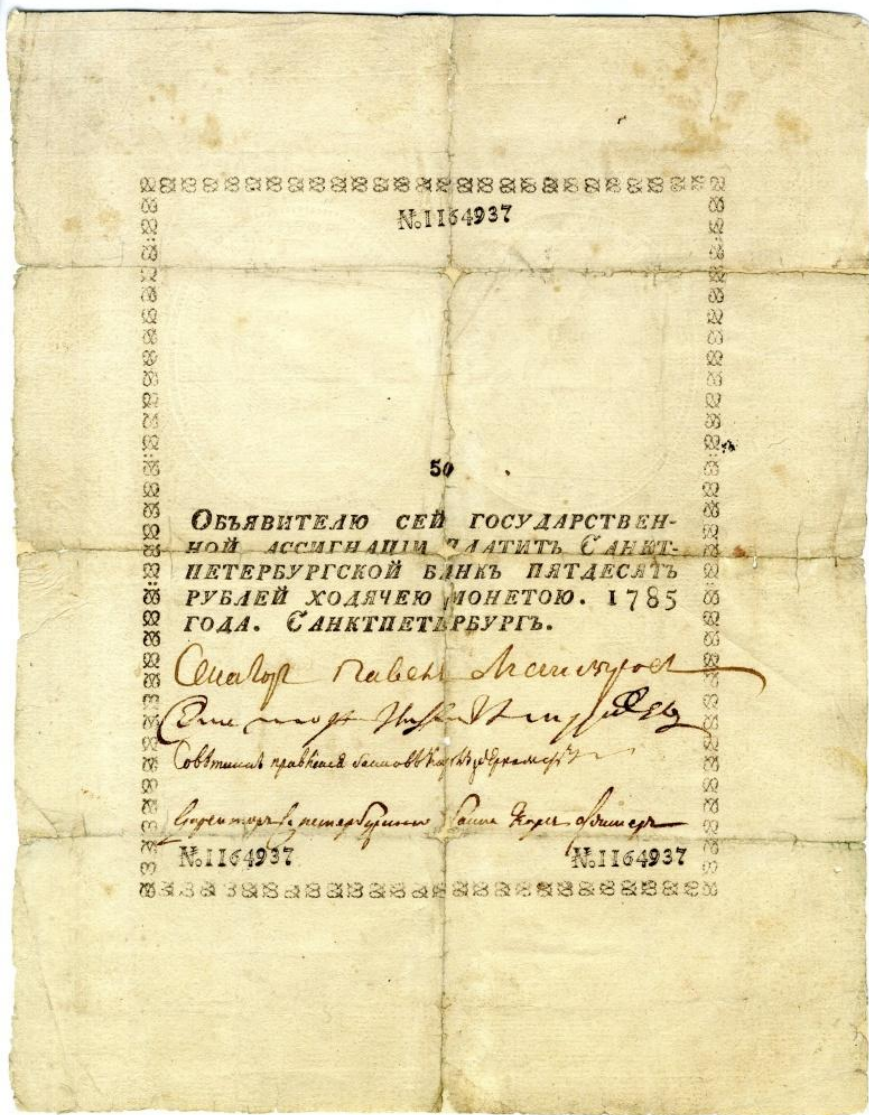 №1164937
50
ОБЪЯВИТЕЛЮ СЕЙ ГОСУДАРСТВЕН-
НОЙ АССИГНАЦІИ ПЛАТИТЪ САНКТ-
ПЕТЕРБУРГСКОЙ БАНКЪ ПЯТДЕСЯТЬ
РУБЛЕЙ ХОДЯЧЕЮ МОНЕТОЮ. 1785
ГОДА. САНКТПЕТЕРБУРГЪ.
Сенатор Павел
Советникъ правления банковъ
Директоръ банка Карл
№1164937 №1164937